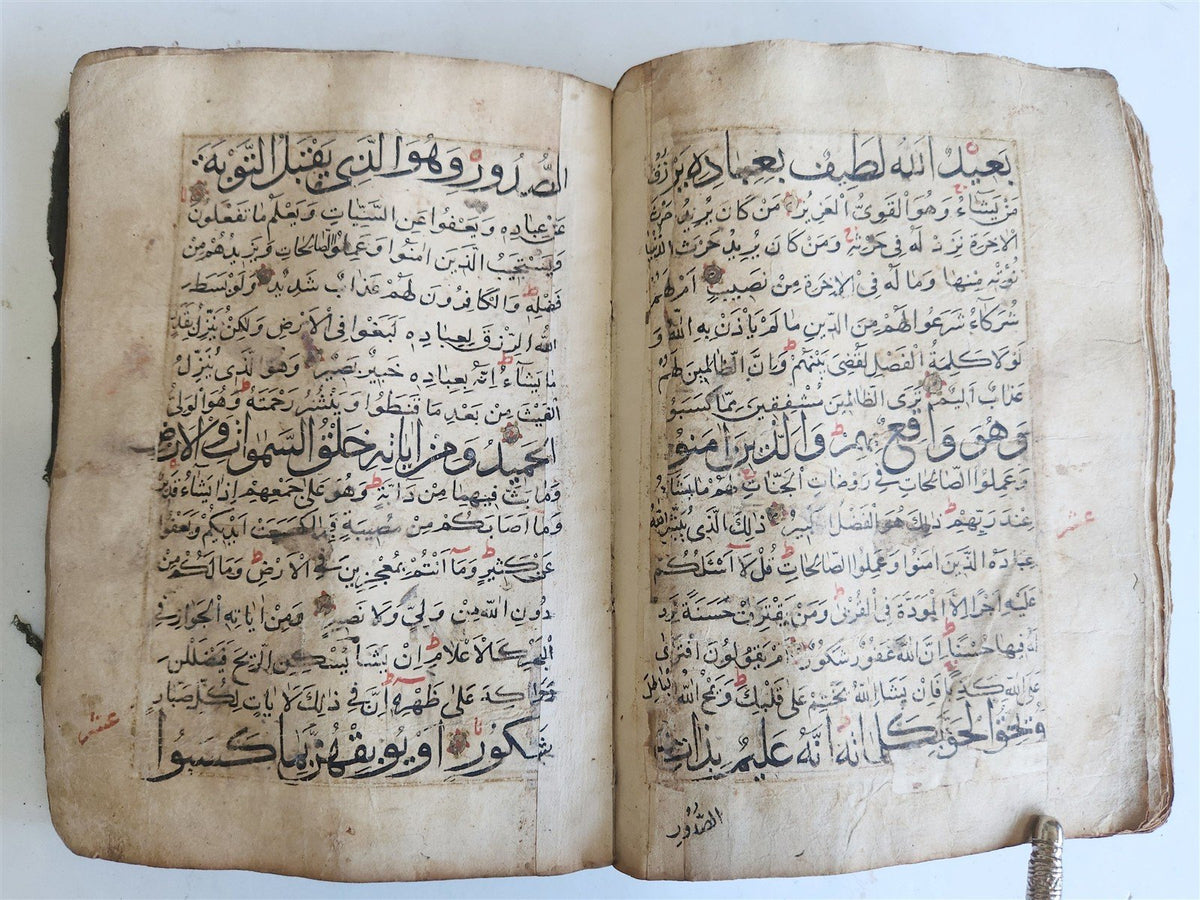 بَعِيْدٍ اَللّٰهُ لَطِيفٌ بِعِبَادِهِ يَرْزُقُ
مَنْ يَشَاءُ وَهُوَ الْقَوِيُّ الْعَزِيزُ مَنْ كَانَ يُرِيدُ حَرْثَ
الْاٰخِرَةِ نَزِدْ لَهُ فِي حَرْثِهِ وَمَنْ كَانَ يُرِيدُ حَرْثَ الدُّنْيَا
نُؤْتِهِ مِنْهَا وَمَا لَهُ فِي الْاٰخِرَةِ مِنْ نَصِيبٍ اَمْ لَهُمْ
شُرَكَاءُ شَرَعُوا لَهُمْ مِنَ الدِّينِ مَا لَمْ يَأْذَنْ بِهِ اللّٰهُ وَ
لَوْلَا كَلِمَةُ الْفَصْلِ لَقُضِيَ بَيْنَهُمْ وَاِنَّ الظَّالِمِينَ لَهُمْ
عَذَابٌ اَلِيمٌ تَرَى الظَّالِمِينَ مُشْفِقِينَ مِمَّا كَسَبُوا
وَهُوَ وَاقِعٌ بِهِمْ وَالَّذِينَ اٰمَنُوا
وَعَمِلُوا الصَّالِحَاتِ فِي رَوْضَاتِ الْجَنَّاتِ لَهُمْ مَا يَشَاءُونَ
عِنْدَ رَبِّهِمْ ذٰلِكَ هُوَ الْفَضْلُ الْكَبِيرُ ذٰلِكَ الَّذِي يُبَشِّرُ اللّٰهُ
عشر
عِبَادَهُ الَّذِينَ اٰمَنُوا وَعَمِلُوا الصَّالِحَاتِ قُلْ لَا اَسْئَلُكُمْ
عَلَيْهِ اَجْرًا اِلَّا الْمَوَدَّةَ فِي الْقُرْبٰى وَمَنْ يَقْتَرِفْ حَسَنَةً نَزِدْ
لَهُ فِيهَا حُسْنًا اِنَّ اللّٰهَ غَفُورٌ شَكُورٌ اَمْ يَقُولُونَ افْتَرٰى
عَلَى اللّٰهِ كَذِبًا فَاِنْ يَشَاِ اللّٰهُ يَخْتِمْ عَلٰى قَلْبِكَ وَيَمْحُ اللّٰهُ الْبَاطِلَ
وَيُحِقُّ الْحَقَّ بِكَلِمَاتِهِ اِنَّهُ عَلِيمٌ بِذَاتِ
الصُّدُورِ
الصُّدُورِ وَهُوَ الَّذِي يَقْبَلُ التَّوْبَةَ
عَنْ عِبَادِهِ وَيَعْفُوا عَنِ السَّيِّئَاتِ وَيَعْلَمُ مَا تَفْعَلُونَ
وَيَسْتَجِيبُ الَّذِينَ اٰمَنُوا وَعَمِلُوا الصَّالِحَاتِ وَيَزِيدُهُمْ مِنْ
فَضْلِهِ وَالْكَافِرُونَ لَهُمْ عَذَابٌ شَدِيدٌ وَلَوْ بَسَطَ
اللّٰهُ الرِّزْقَ لِعِبَادِهِ لَبَغَوْا فِي الْاَرْضِ وَلٰكِنْ يُنَزِّلُ بِقَدَرٍ
مَا يَشَاءُ اِنَّهُ بِعِبَادِهِ خَبِيرٌ بَصِيرٌ وَهُوَ الَّذِي يُنَزِّلُ
الْغَيْثَ مِنْ بَعْدِ مَا قَنَطُوا وَيَنْشُرُ رَحْمَتَهُ وَهُوَ الْوَلِيُّ
الْحَمِيدُ وَمِنْ اٰيَاتِهِ خَلْقُ السَّمٰوَاتِ وَالْاَرْضِ
وَمَا بَثَّ فِيهِمَا مِنْ دَابَّةٍ وَهُوَ عَلٰى جَمْعِهِمْ اِذَا يَشَاءُ قَدِيرٌ
وَمَا اَصَابَكُمْ مِنْ مُصِيبَةٍ فَبِمَا كَسَبَتْ اَيْدِيكُمْ وَيَعْفُوا
عَنْ كَثِيرٍ وَمَا اَنْتُمْ بِمُعْجِزِينَ فِي الْاَرْضِ وَمَا لَكُمْ مِنْ
دُونِ اللّٰهِ مِنْ وَلِيٍّ وَلَا نَصِيرٍ وَمِنْ اٰيَاتِهِ الْجَوَارِ فِي
الْبَحْرِ كَالْاَعْلَامِ اِنْ يَشَأْ يُسْكِنِ الرِّيحَ فَيَظْلَلْنَ
رَوَاكِدَ عَلٰى ظَهْرِهِ اِنَّ فِي ذٰلِكَ لَاٰيَاتٍ لِكُلِّ صَبَّارٍ
عشر
شَكُورٍ اَوْ يُوبِقْهُنَّ بِمَا كَسَبُوا